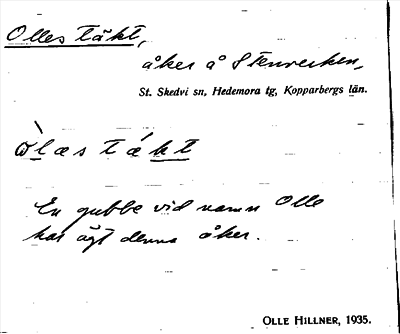 Olles täkt,
åker å Stenvreten,
St. Skedvi sn, Hedemora tg, Kopparbergs län.
òlæs tákt
En gubbe vid namn Olle
har ägt denna åker.
OLLE HILLNER, 1935.